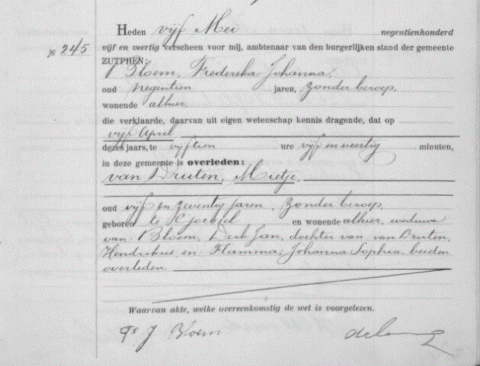 Heden vijf Mei negentienhonderd
№ 245 vijf en veertig verscheen voor mij, ambtenaar van den burgerlijken stand der gemeente
ZUTPHEN:
Bloem, Frederika Johanna,
oud negentien jaren, zonder beroep,
wonende alhier,
die verklaarde, daarvan uit eigen wetenschap kennis dragende, dat op
vijf April
dezes jaars, te vijftien ure vijf en veertig minuten,
in deze gemeente is overleden:
van Druten, Mietje,
oud vijf en zeventig jaren, zonder beroep,
geboren te en wonende alhier, weduwe
van Bloem, Dirk Jan, dochter van van Druten,
Hendrikus en Flamma, Johanna Sophia, beiden
overleden
Waarvan akte, welke overeenkomstig de wet is voorgelezen.
J Bloem